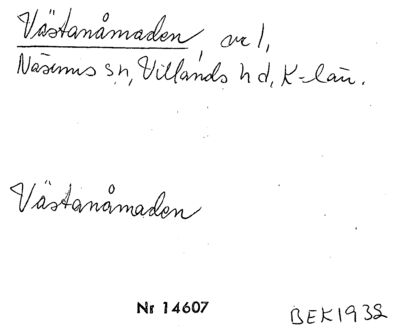 Västanåmaden, vr 1,
Näsums sn, Villands hd, K-län.
Västanåmaden
Nr 14607
BEK1932